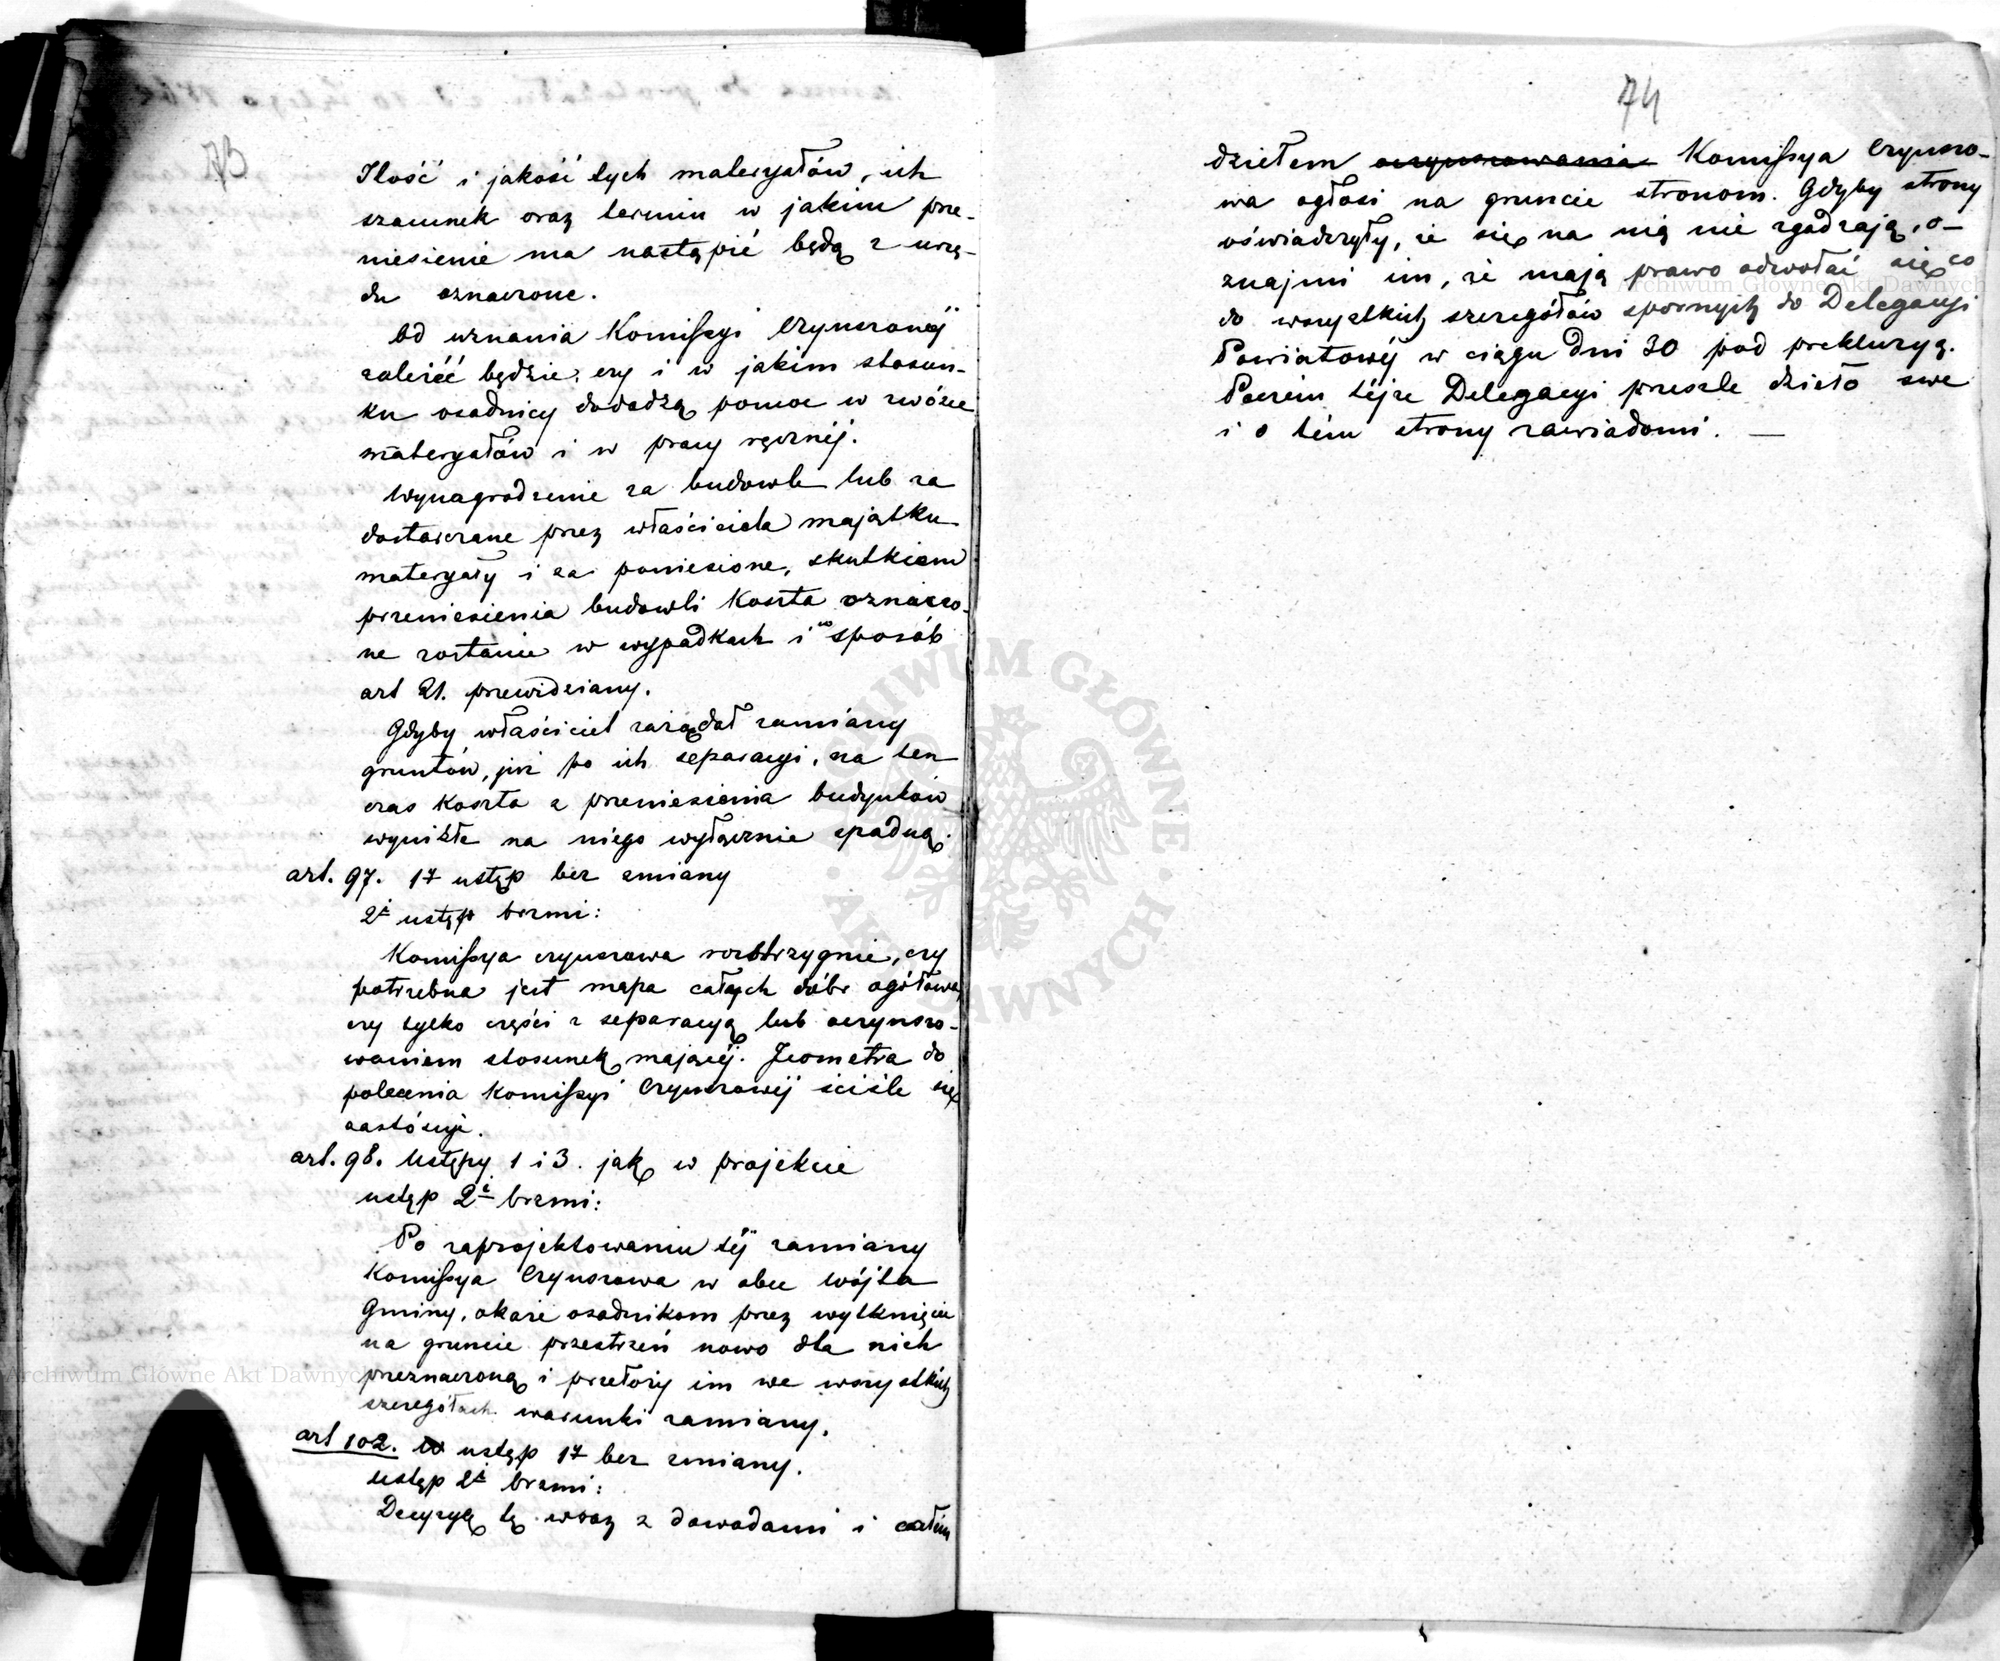 73
Ilość i jakość tych materyałów, ich
szacunek oraz termin w jakim prze-
niesienie ma nastąpić będą z urzę-
du oznaczone.
Od uznania Komissyi Czynszowéj
zależeć będzie, czy i w jakim stosun-
ku osadnicy dodadzą pomoc w zwózce
materyałów i w pracy ręcznéj.
Wynagrodzenie za budowle lub za
dostarczane przez właściciela majątku
materyały i za poniesione, skutkiem
przeniesienia budowli Koszta oznaczo-
ne zostanie w wypadkach i w sposób
art 21. przewidziany.
Gdyby właściciel zażądał zamiany
gruntów, już po ich separacyi, na ten
czas Koszta z przeniesienia budynków
wynikłe na niego wyłącznie spadną.
art. 97. 1y ustęp bez zmiany
2i ustęp brzmi:
Komissya czynszowa rozstrzygnie, czy
potrzebna jest mapa całych dóbr ogółowa,
czy tylko części z separacyą lub oczynszo-
waniem stosunek mającéj. Jeometra do
polecenia Komissyi Czynszowéj ściśle się
zastósuje.
art. 98. Ustępy 1 i 3. jak w projekcie
ustęp 2i brzmi:
Po zaprojektowaniu téj zamiany
Komissya Czynszowa w obec Wójta
Gminy, okaże osadnikom przez wytknięcie
na gruncie przestrzeń nowo dla nich
przeznaczoną i przełoży im we wszystkich
szczegółach warunki zamiany.
art 102. ustęp 1y bez zmiany.
ustęp 2i brzmi:
Decyzyą tę wraz z dowodami i całém
74
dziełem oczynszowania Komissya Czynszo-
wa ogłosi na gruncie stronom. Gdyby strony
oświadczyły, że się na nią nie zgadzają, o-
znajmi im, że mają prawo odwołać się co
do wszystkich szczegółów spornych do Delegacyi
Powiatowéj w ciągu dni 30 pod prekluzyą.
Poczém téjże Delegacyi prześle dzieło swe
i o tém strony zawiadomi. —
Archiwum Główne Akt Dawnych
Archiwum Główne Akt Dawnych
ARCHIWUM GŁÓWNE · AKT DAWNYCH ·